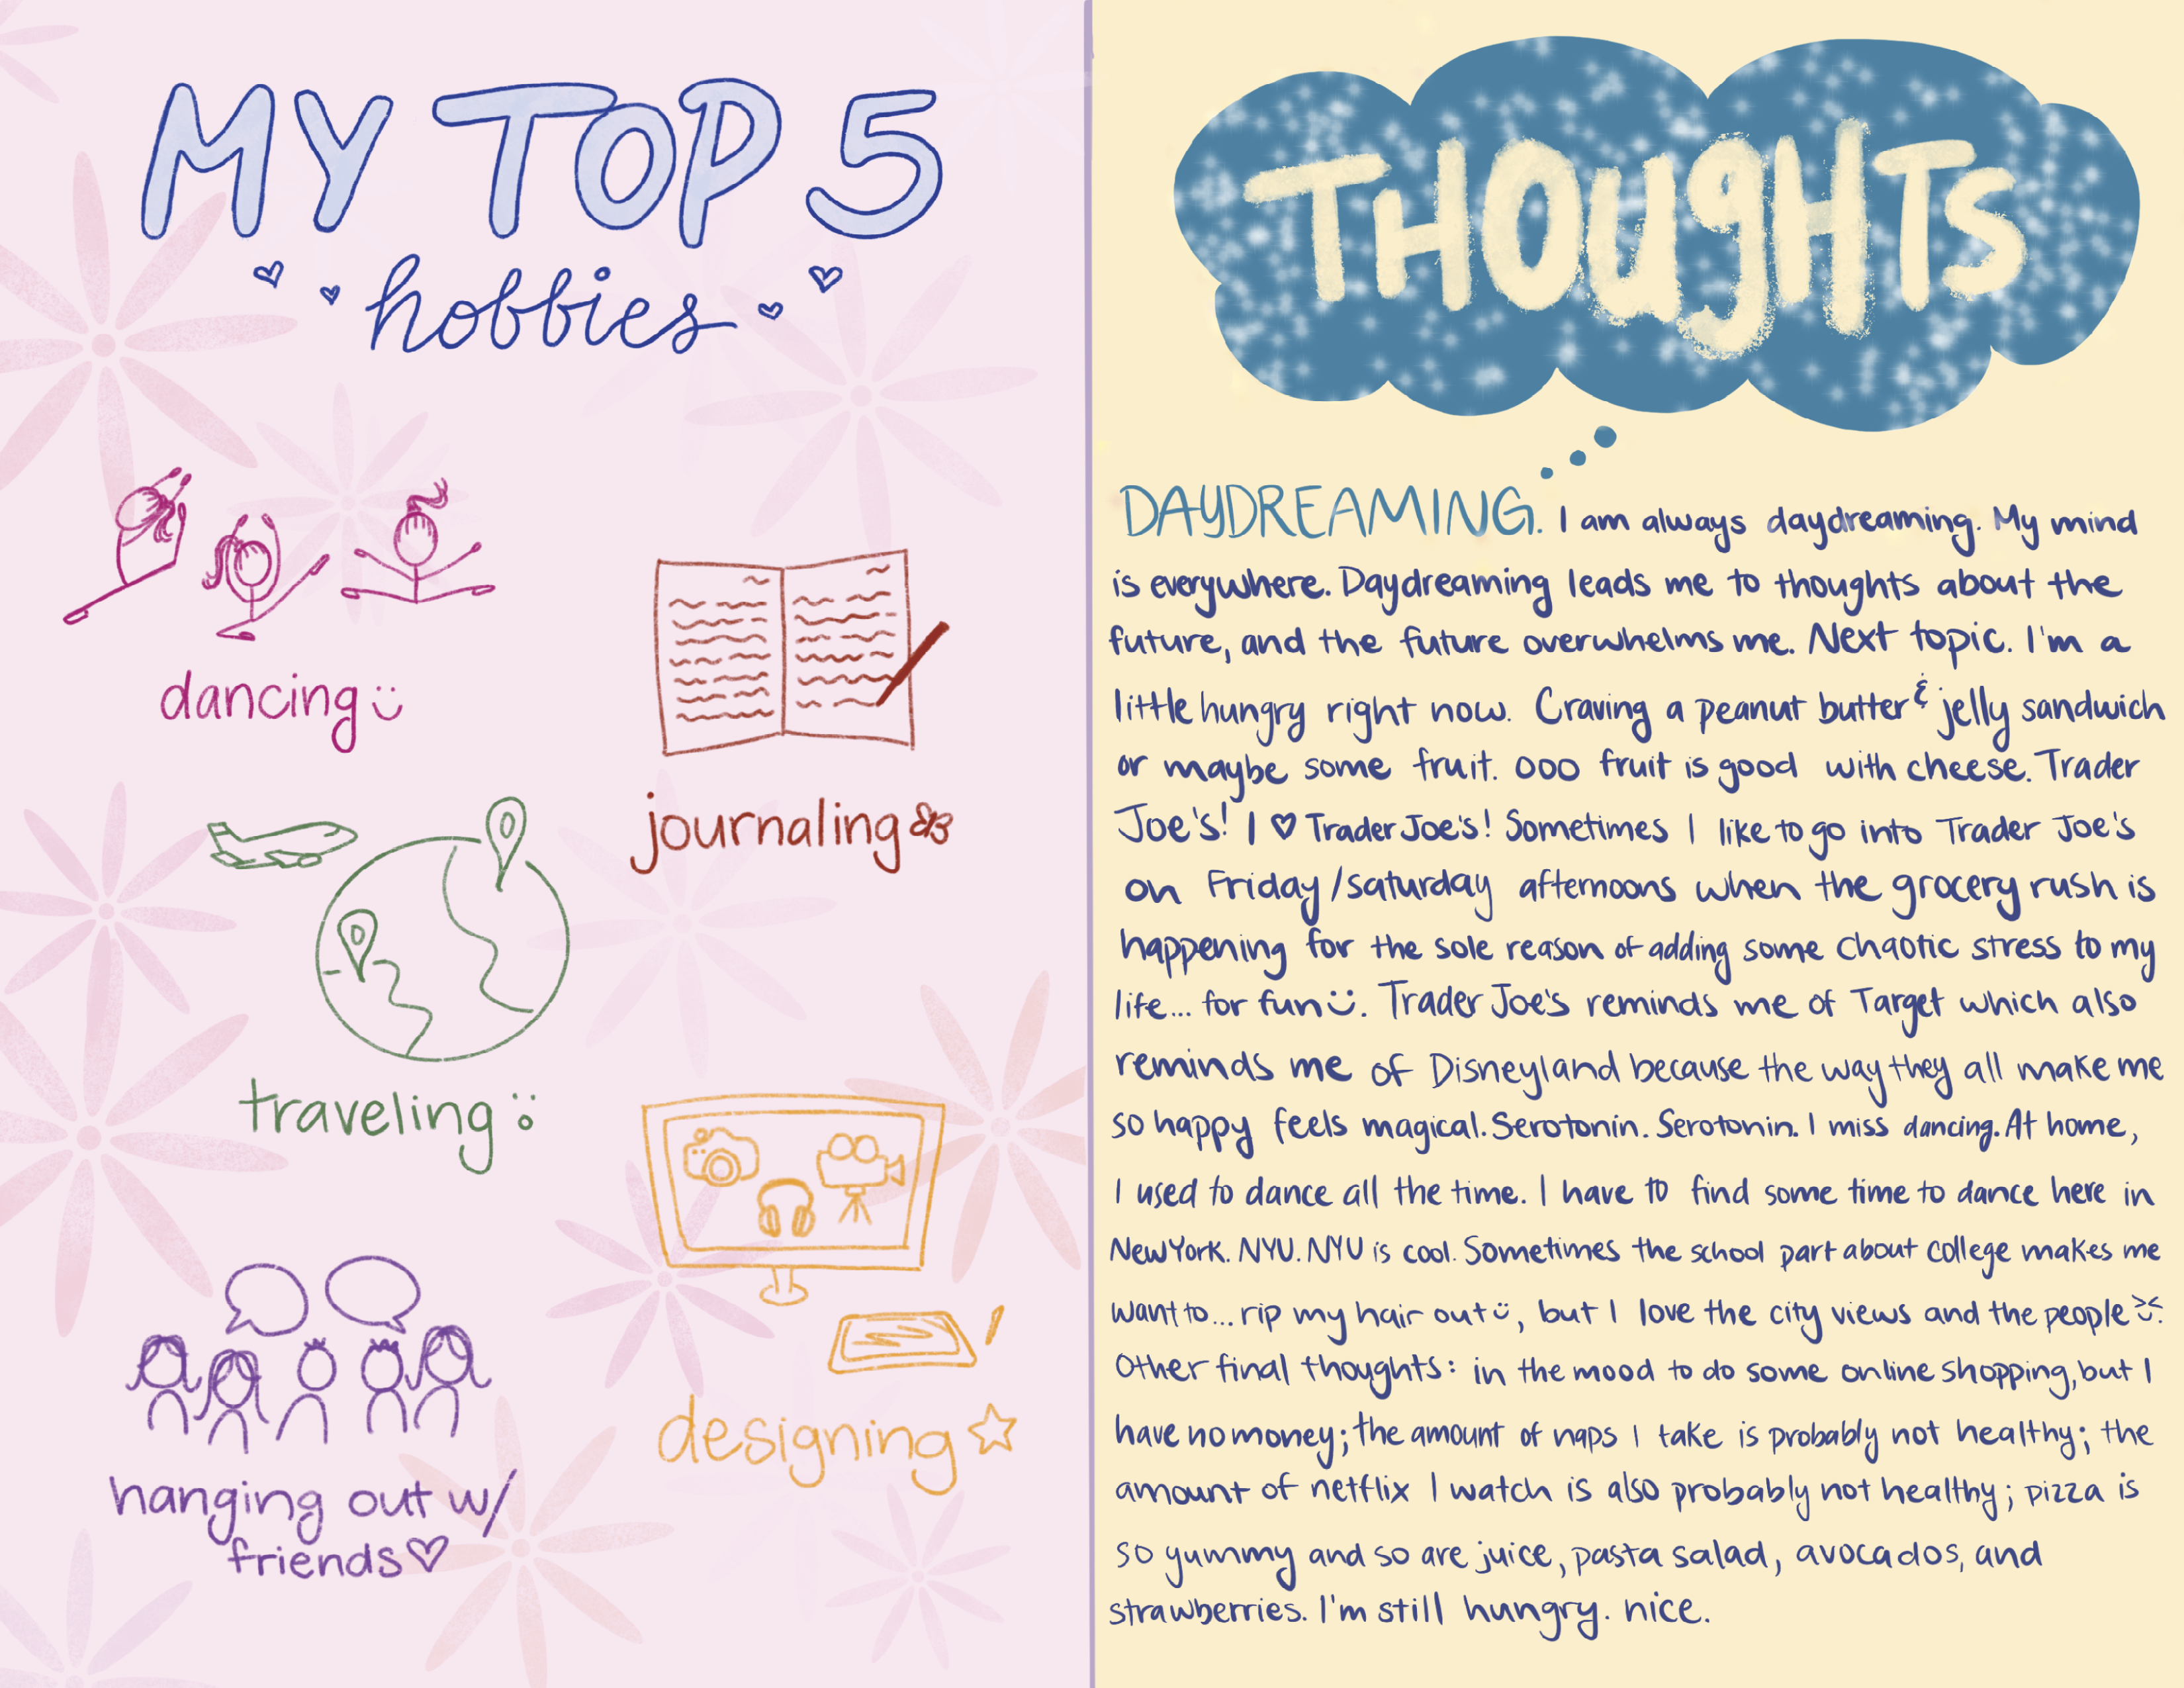 MY TOP 5
hobbies
dancing
journaling
traveling
designing
hanging out w/
friends
THOUGHTS
DAYDREAMING. I am always daydreaming. My mind
is everywhere. Daydreaming leads me to thoughts about the
future, and the future overwhelms me. Next topic. I'm a
little hungry right now. Craving a peanut butter & jelly sandwich
or maybe some fruit. ooo fruit is good with cheese. Trader
Joe's! I ♡ Trader Joe's! Sometimes I like to go into Trader Joe's
on Friday/saturday afternoons when the grocery rush is
happening for the sole reason of adding some chaotic stress to my
life... for fun :). Trader Joe's reminds me of Target which also
reminds me of Disneyland because the way they all make me
so happy feels magical. Serotonin. Serotonin. I miss dancing. At home,
I used to dance all the time. I have to find some time to dance here in
New York. NYU. NYU is cool. Sometimes the school part about college makes me
want to... rip my hair out :), but I love the city views and the people ><.
Other final thoughts: in the mood to do some online shopping, but I
have no money; the amount of naps I take is probably not healthy; the
amount of netflix I watch is also probably not healthy; pizza is
so yummy and so are juice, pasta salad, avocados, and
strawberries. I'm still hungry. nice.